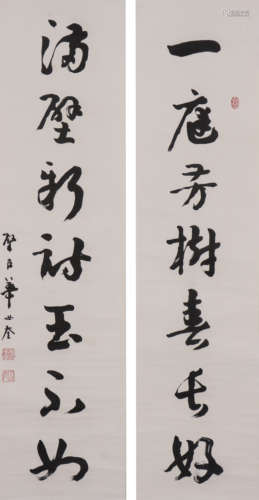 一庭芳樹春長好
滿壁新詩玉不如
璧臣華世奎